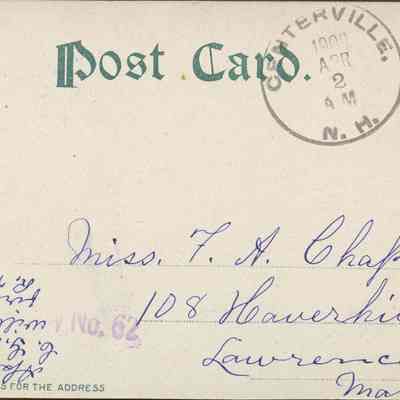 Post Card.
CENTERVILLE.
1909
APR
2
AM
N. H.
Miss. F. A. Chap
108 Haverhi
Lawrenc
Ma
No. 62
S FOR THE ADDRESS